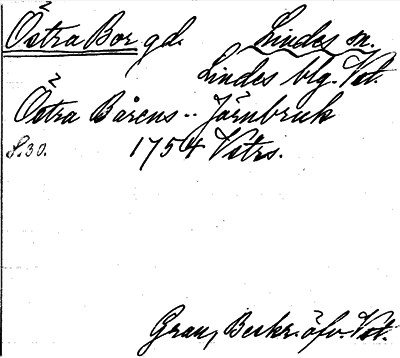 Östra Bor gd. Lindes sn.
Lindes blg. Vst.
Östra Bårens .. Järnbruk
S.30. 1754 Vstrs.
Grau, Beskr. öfv. Vst.